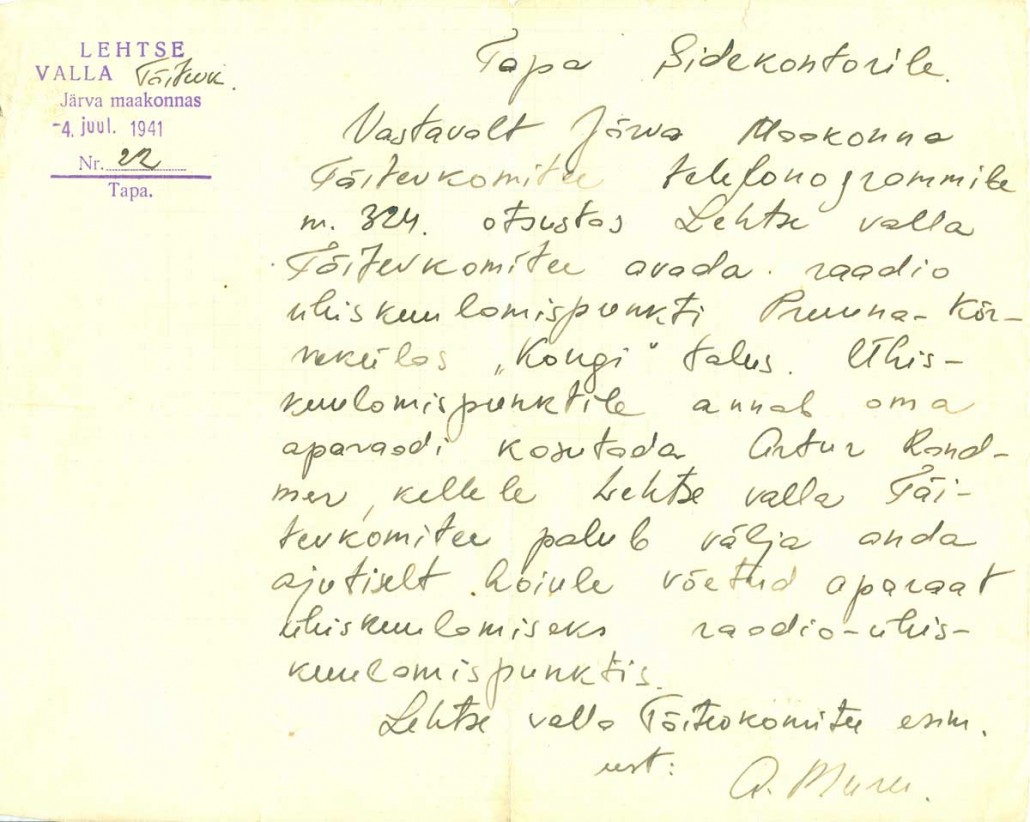 LEHTSE
VALLA Täitevk.
Järva maakonnas
-4. juul. 1941
Nr. 22
Tapa.
Tapa Sidekontorile.
Vastavalt Järva Maakonna
Täitevkomitee telefonogrammile
nr. 324. otsustas Lehtse valla
Täitevkomitee avada raadio
ühiskuulamispunkti Pruuna-Kõr-
vekülas „Kongi" talus. Ühis-
kuulamispunktile annab oma
aparaadi kasutada Artur Rand-
mer, kellele Lehtse valla Täi-
tevkomitee palub välja anda
ajutiselt hoiule võetud aparaat
ühiskuulamiseks raadio-ühis-
kuulamispunktis.
Lehtse valla Täitevkomitee esim.
ast: A.